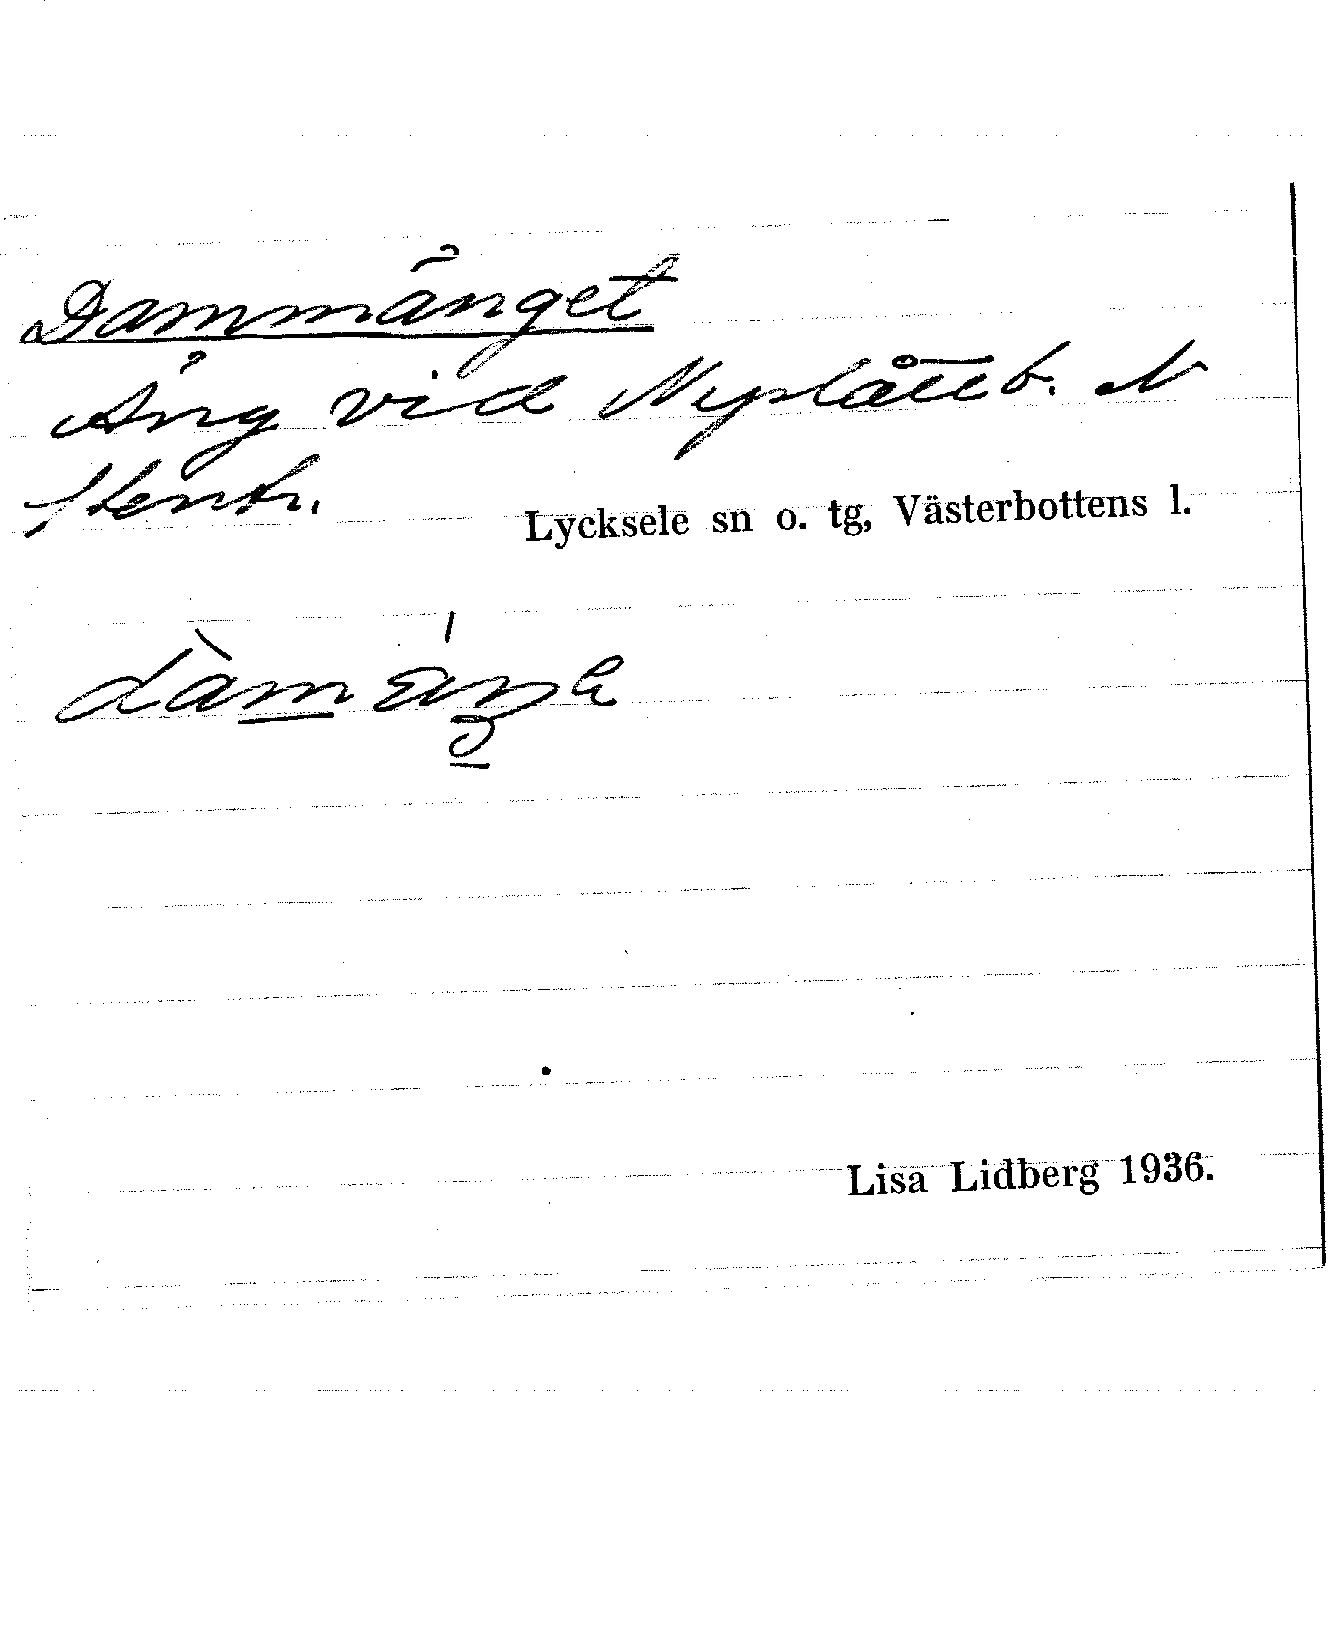 Dammänget
Äng vid Nyslåttb. N
Stentr.
Lycksele sn o. tg, Västerbottens l.
Lisa Lidberg 1936.